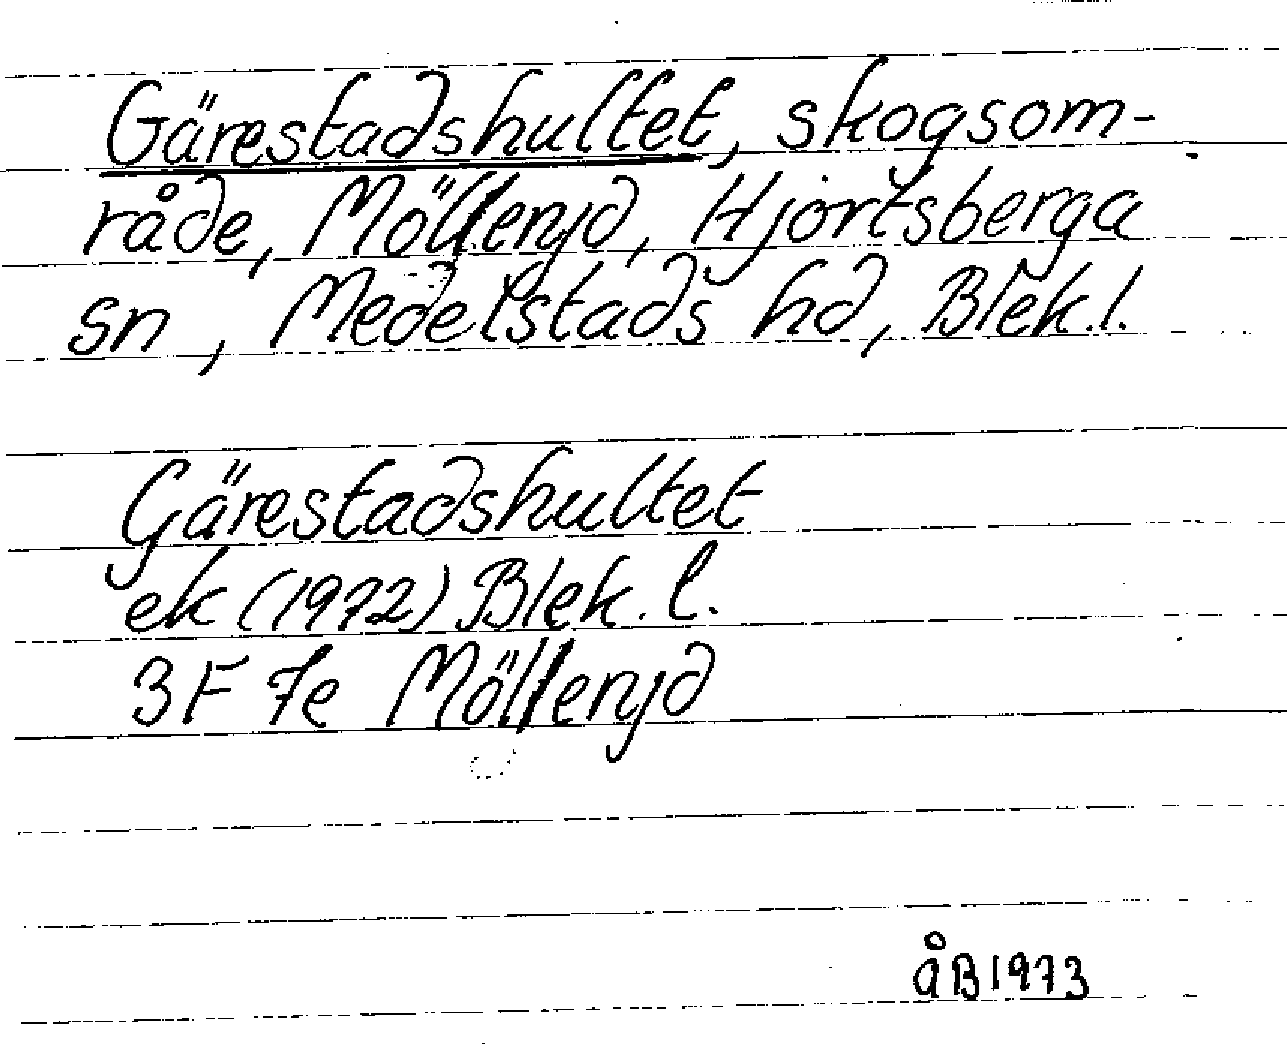 Gärestadshultet, skogsom-
råde, Möllenjd, Hjortsberga
sn, Medelstads hd, Blek.l.
Gärestadshultet
ek (1972) Blek. l.
3F 7e Möllenjd
åB1973